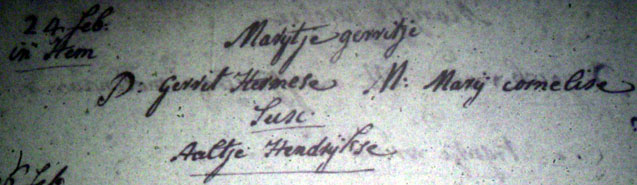 24. feb.
in Hem
Marijtje gerritje
P: Gerrit Hermese M: Marij cornelise
Susc
Aaltje Hendrijkse
feb